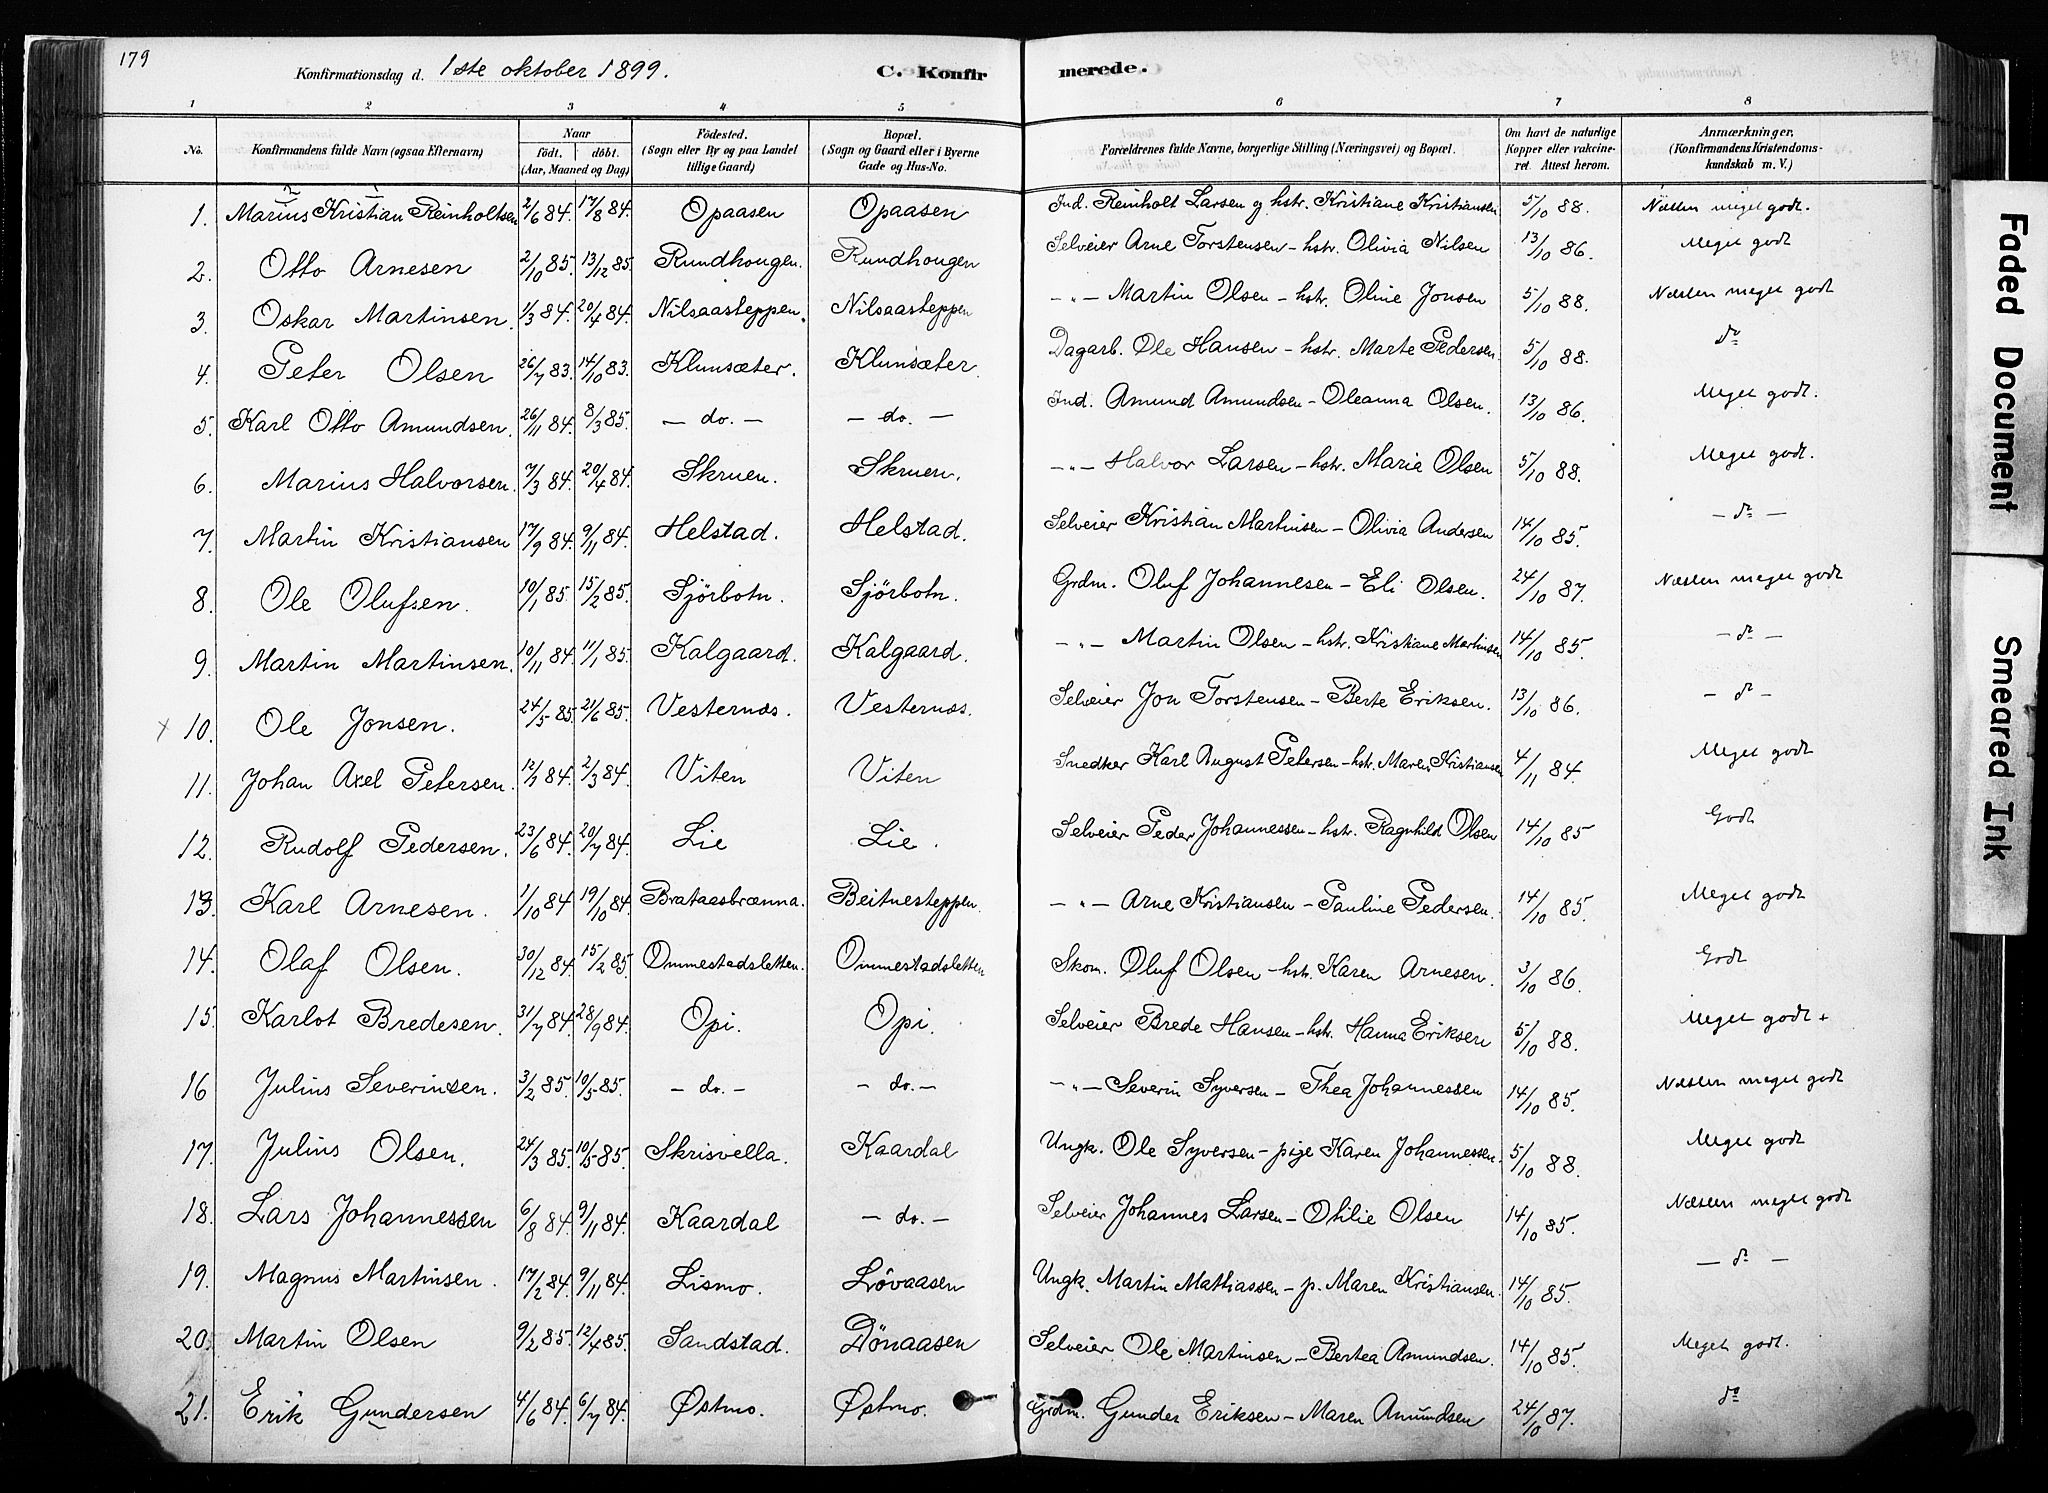 179
Konfirmationsdag d. 1ste oktober 1899. C. Konfirmerede.
1 2 3 4 5 6 7 8
No. Konfirmandens fulde Navn (ogsaa Efternavn) Naar født, døbt. (Aar, Maaned og Dag) Fødested. (Sogn eller By og paa Landet tillige Gaard) Bopæl. (Sogn og Gaard eller i Byerne Gade og Hus-No. Forældrenes fulde Navne, borgerlige Stilling (Næringsvei) og Bopæl. Om havt de naturlige Kopper eller vakcineret. Attest herom. Anmærkninger. (Konfirmandens Kristendomskundskab m. V.)
2 1
1. Marius Kristian Reinholtsen 2/6 84. 17/8 84. Opaasen Opaasen Ind. Reinholt Larsen og hstr. Kristiane Kristiansen 5/10 88. Næsten meget godt.
2. Otto Arnesen 2/10 85. 13/12 85. Rundhougen. Rundhougen Selveier Arne Torstensen – hstr. Olivia Nilsen 13/10 86. Meget godt
3. Oskar Martinsen. 1/3 84. 20/4 84. Nilsaasteppen. Nilsaasteppen – " – Martin Olsen – hstr. Oline Jonsen 5/10 88. Næsten meget godt
4. Peter Olsen 26/7 83. 14/10 83. Klunsæter. Klunsæter. Dagarb. Ole Hansen – hstr. Marte Pedersen. 5/10 88. do
5. Karl Otto Amundsen. 26/11 84. 8/3 85. – do. – – do. – Ind. Amund Amundsen – Oleanna Olsen. 13/10 86. Meget godt.
6. Marius Halvorsen. 7/3 84. 20/4 84. Skruen. Skruen. – " – Halvor Larsen – hstr. Maria Olsen 5/10 88. Meget godt.
7. Martin Kristiansen 17/9 84. 9/11 84. Helstad. Helstad. Selveier Kristian Martinsen – Olivia Andersen 14/10 85. – do –
8. Ole Olufsen. 10/1 85. 15/2 85. Sjörbotn. Sjörbotn. Grdm. Oluf Johannesen – Eli Olsen. 24/10 87. Næsten meget godt
9. Martin Martinsen. 10/11 84. 11/1 85. Kalgaard. Kalgaard. – " – Martin Olsen – hstr. Kristiane Martinsen 14/10 85. – do –
x 10. Ole Jonsen. 24/5 85. 21/6 85. Vesternæs. Vesternæs. Selveier Jon Torstensen – Berte Eriksen. 13/10 86. – do –
11. Johan Axel Petersen. 12/1 84. 2/3 84. Viten Viten Snedker Karl August Petersen – hstr. Maren Kristiansen 4/11 84. Meget godt
12. Rudolf Pedersen. 23/6 84. 20/7 84. Lie Lie. Selveier Peder Johannessen – hstr. Ragnhild Olsen 14/10 85 Godt
13. Karl Arnesen. 1/10 84 19/10 84. Brataasbrænna. Beitnesteppen. – " – Arne Kristiansen – Pauline Pedersen. 14/10 85. Meget godt
14. Olaf Olsen. 30/12 84. 15/2 85. Ommestadsletten. Ommestadsletten Skom. Oluf Olsen – hstr. Karen Arnesen. 3/10 86. Godt
15. Karlot Bredesen. 31/7 84. 28/9 84. Opi. Opi. Selveier Brede Hansen – hstr. Hanna Eriksen 5/10 88. Meget godt +
16 Julius Severinsen. 3/2 85. 10/5 85. – do. – – do. – – " – Severin Syversen – Thea Johannessen 14/10 85. Næsten meget godt
17. Julius Olsen. 24/3 85. 10/5 85. Skrisvella. Kaardal Ungk. Ole Syversen – pige Karen Johannessen. 5/10 88. Meget godt
18. Lars Johannessen 6/8 84. 9/11 84. Kaardal – do. – Selveier Johannes Larsen – Othilie Olsen 14/10 85. Næsten meget godt
19. Magnus Martinsen. 17/2 84. 9/11 84. Lismo. Lövaasen Ungk. Martin Mathiassen – p. Maren Kristiansen. 14/10 85. – do –
20. Martin Olsen 9/2 85. 12/4 85. Sandstad. Dönaasen Selveier Ole Martinsen – Bertea Amundsen. 14/10 85. Meget godt.
21. Erik Gundersen 4/6 84. 6/7 84. Østmo. Østmo. Grdm. Gunder Eriksen – Maren Amundsen 24/10 87. do
Faded Document
Smeared Ink